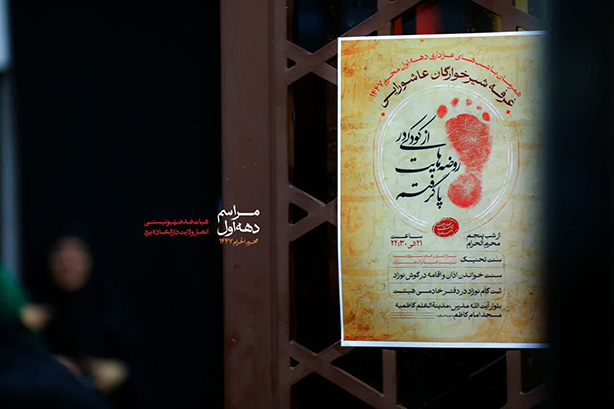 همزمان با شب‌های عزاداری دهه اول محرم ۱۴۴۷
غرفه شیرخوارگان عاشورایی
از کودکی در
روضه‌هایت
پا گرفته
از شب پنجم
محرم الحرام
ساعت
۲۱ الی ۲۲:۳۰
سنت تحنیک
سنت خواندن اذان و اقامه در گوش نوزاد
ثبت نام نوزاد در دفتر خادمی هیئت
بلوار آیت الله مدرس، مدینةالعلم کاظمیه
مسجد امام کاظم
مراسم
دهه اول
محرم الحرام ۱۴۴۷
هیات ضد صهیونیستی
انصار ولایت دارالعباده یزد